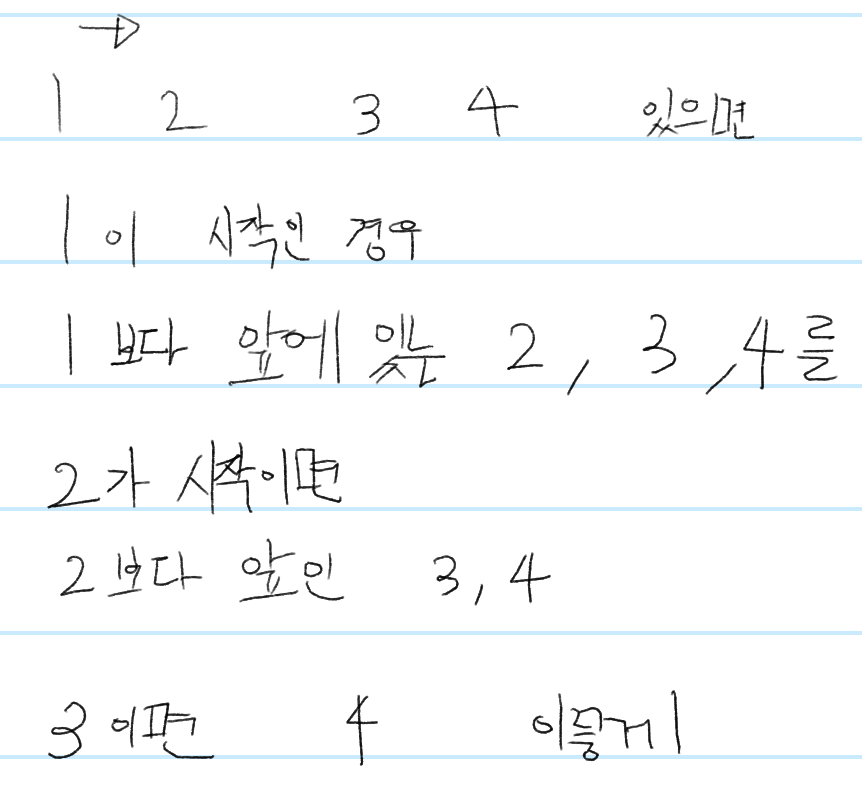 →
1 2 3 4 있으면
1이 시작인 경우
1보다 앞에 있는 2, 3, 4를
2가 시작이면
2보다 앞인 3, 4
3이면 4